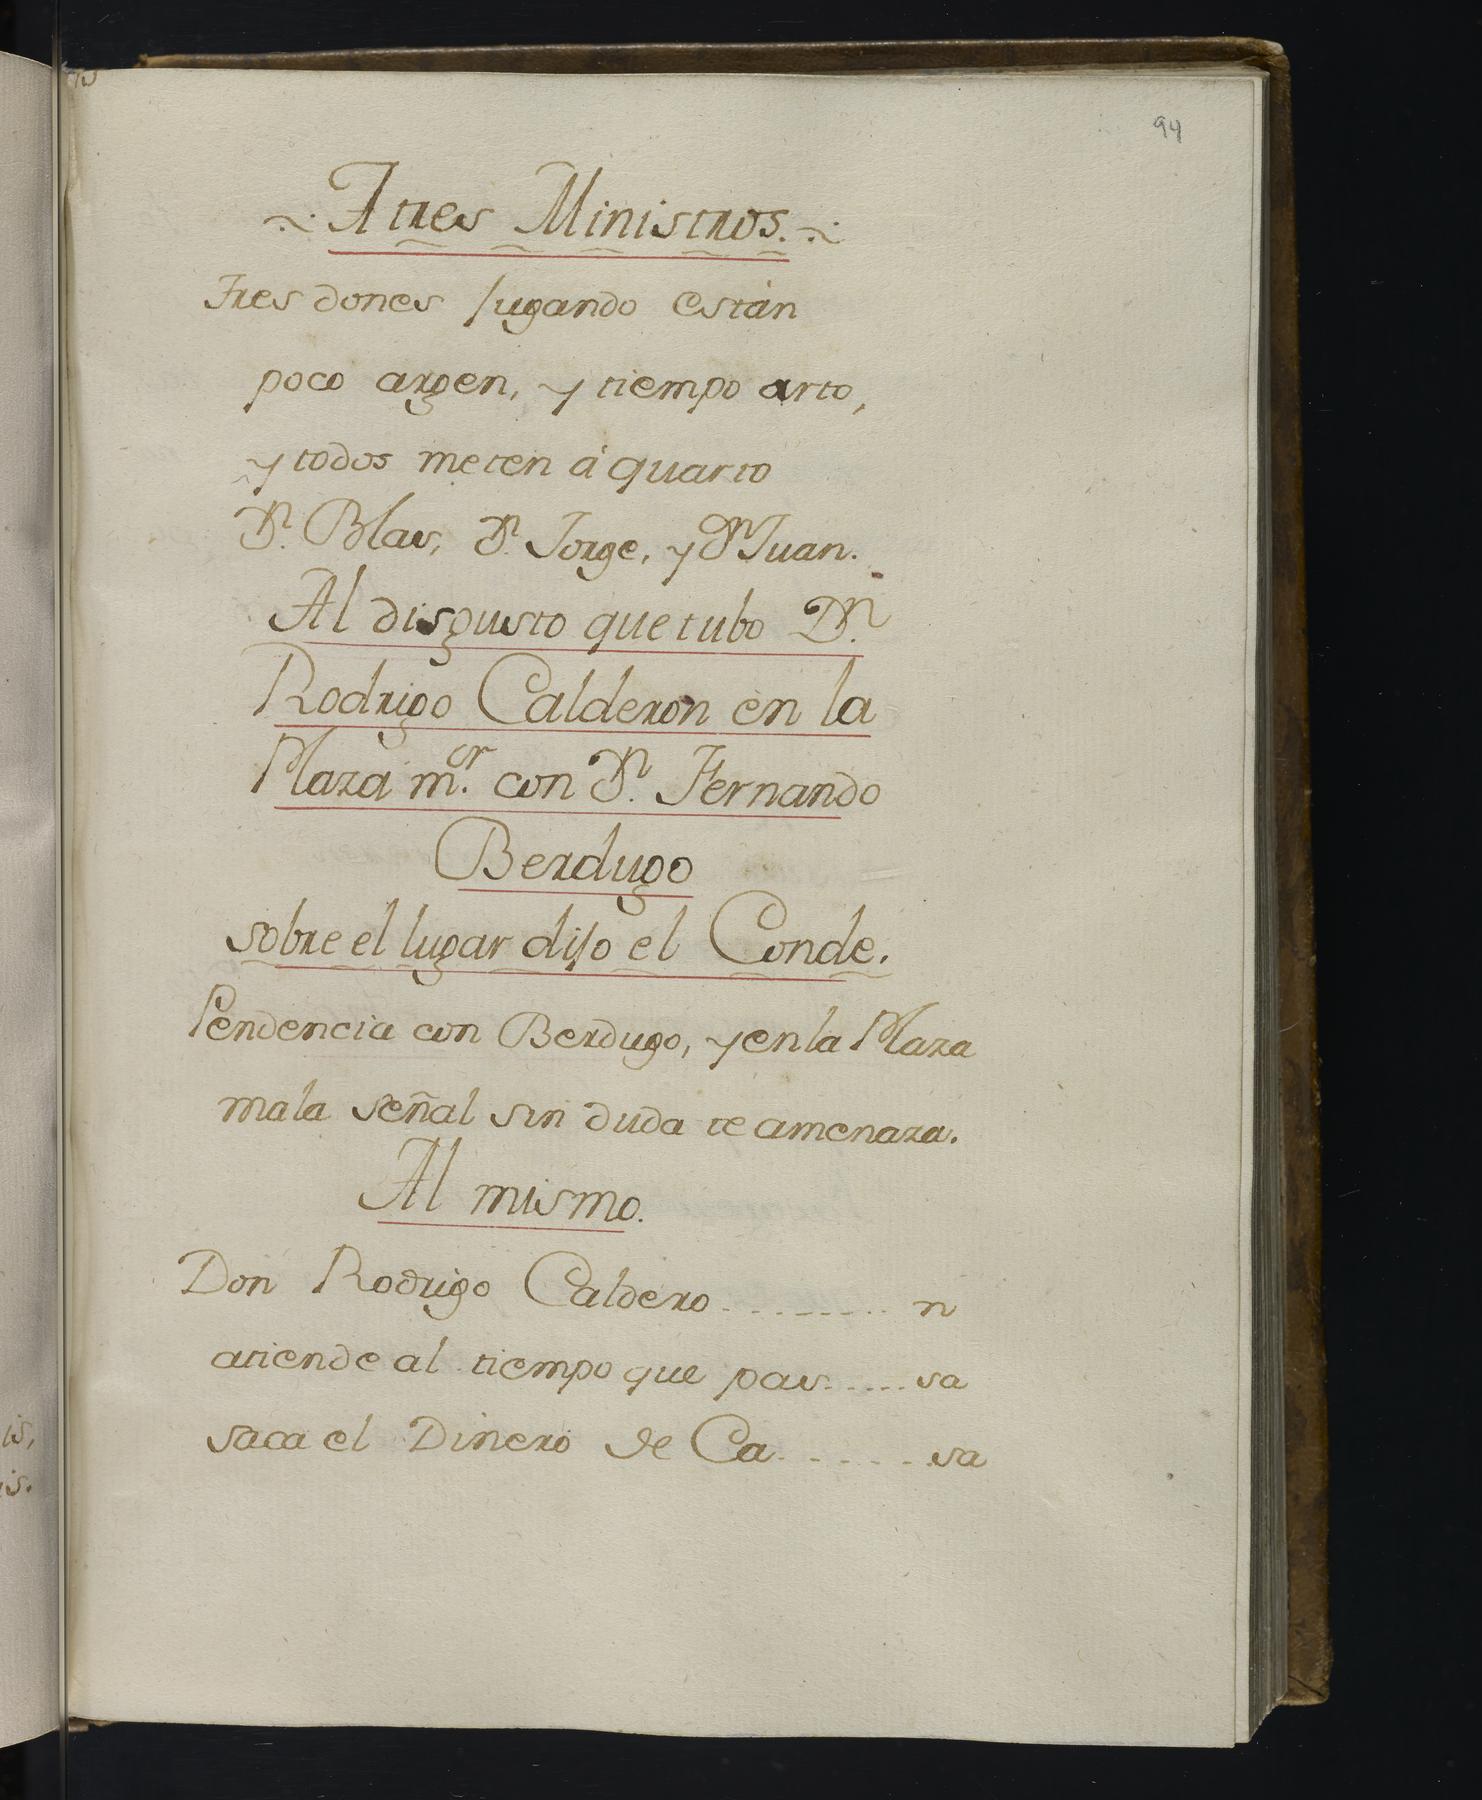 94
A tres Ministros.
Tres dones jugando están
poco argen, y tiempo arto,
y todos meten á quarto
Dn. Blas, Dn. Jorge, y Dn Juan.
Al disgusto que tubo Dn.
Rodrigo Calderon en la
Plaza mor. con Dn. Fernando
Berdugo
sobre el lugar dijo el Conde.
Pendencia con Berdugo, y en la Plaza
mala señal sin duda te amenaza.
Al mismo.
Don Rodrigo Caldero ......... n
atiende al tiempo que pas ..... sa
saca el Dinero de Ca ....... sa